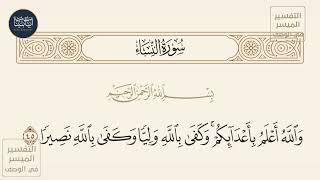 التفسير
الميسر
في الوصف
سُورَةُ النِّسَاءِ
بِسْمِ اللَّهِ الرَّحْمَٰنِ الرَّحِيمِ
وَاللَّهُ أَعْلَمُ بِأَعْدَائِكُمْ ۚ وَكَفَىٰ بِاللَّهِ وَلِيًّا وَكَفَىٰ بِاللَّهِ نَصِيرًا ٤٥
التفسير
الميسر
في الوصف